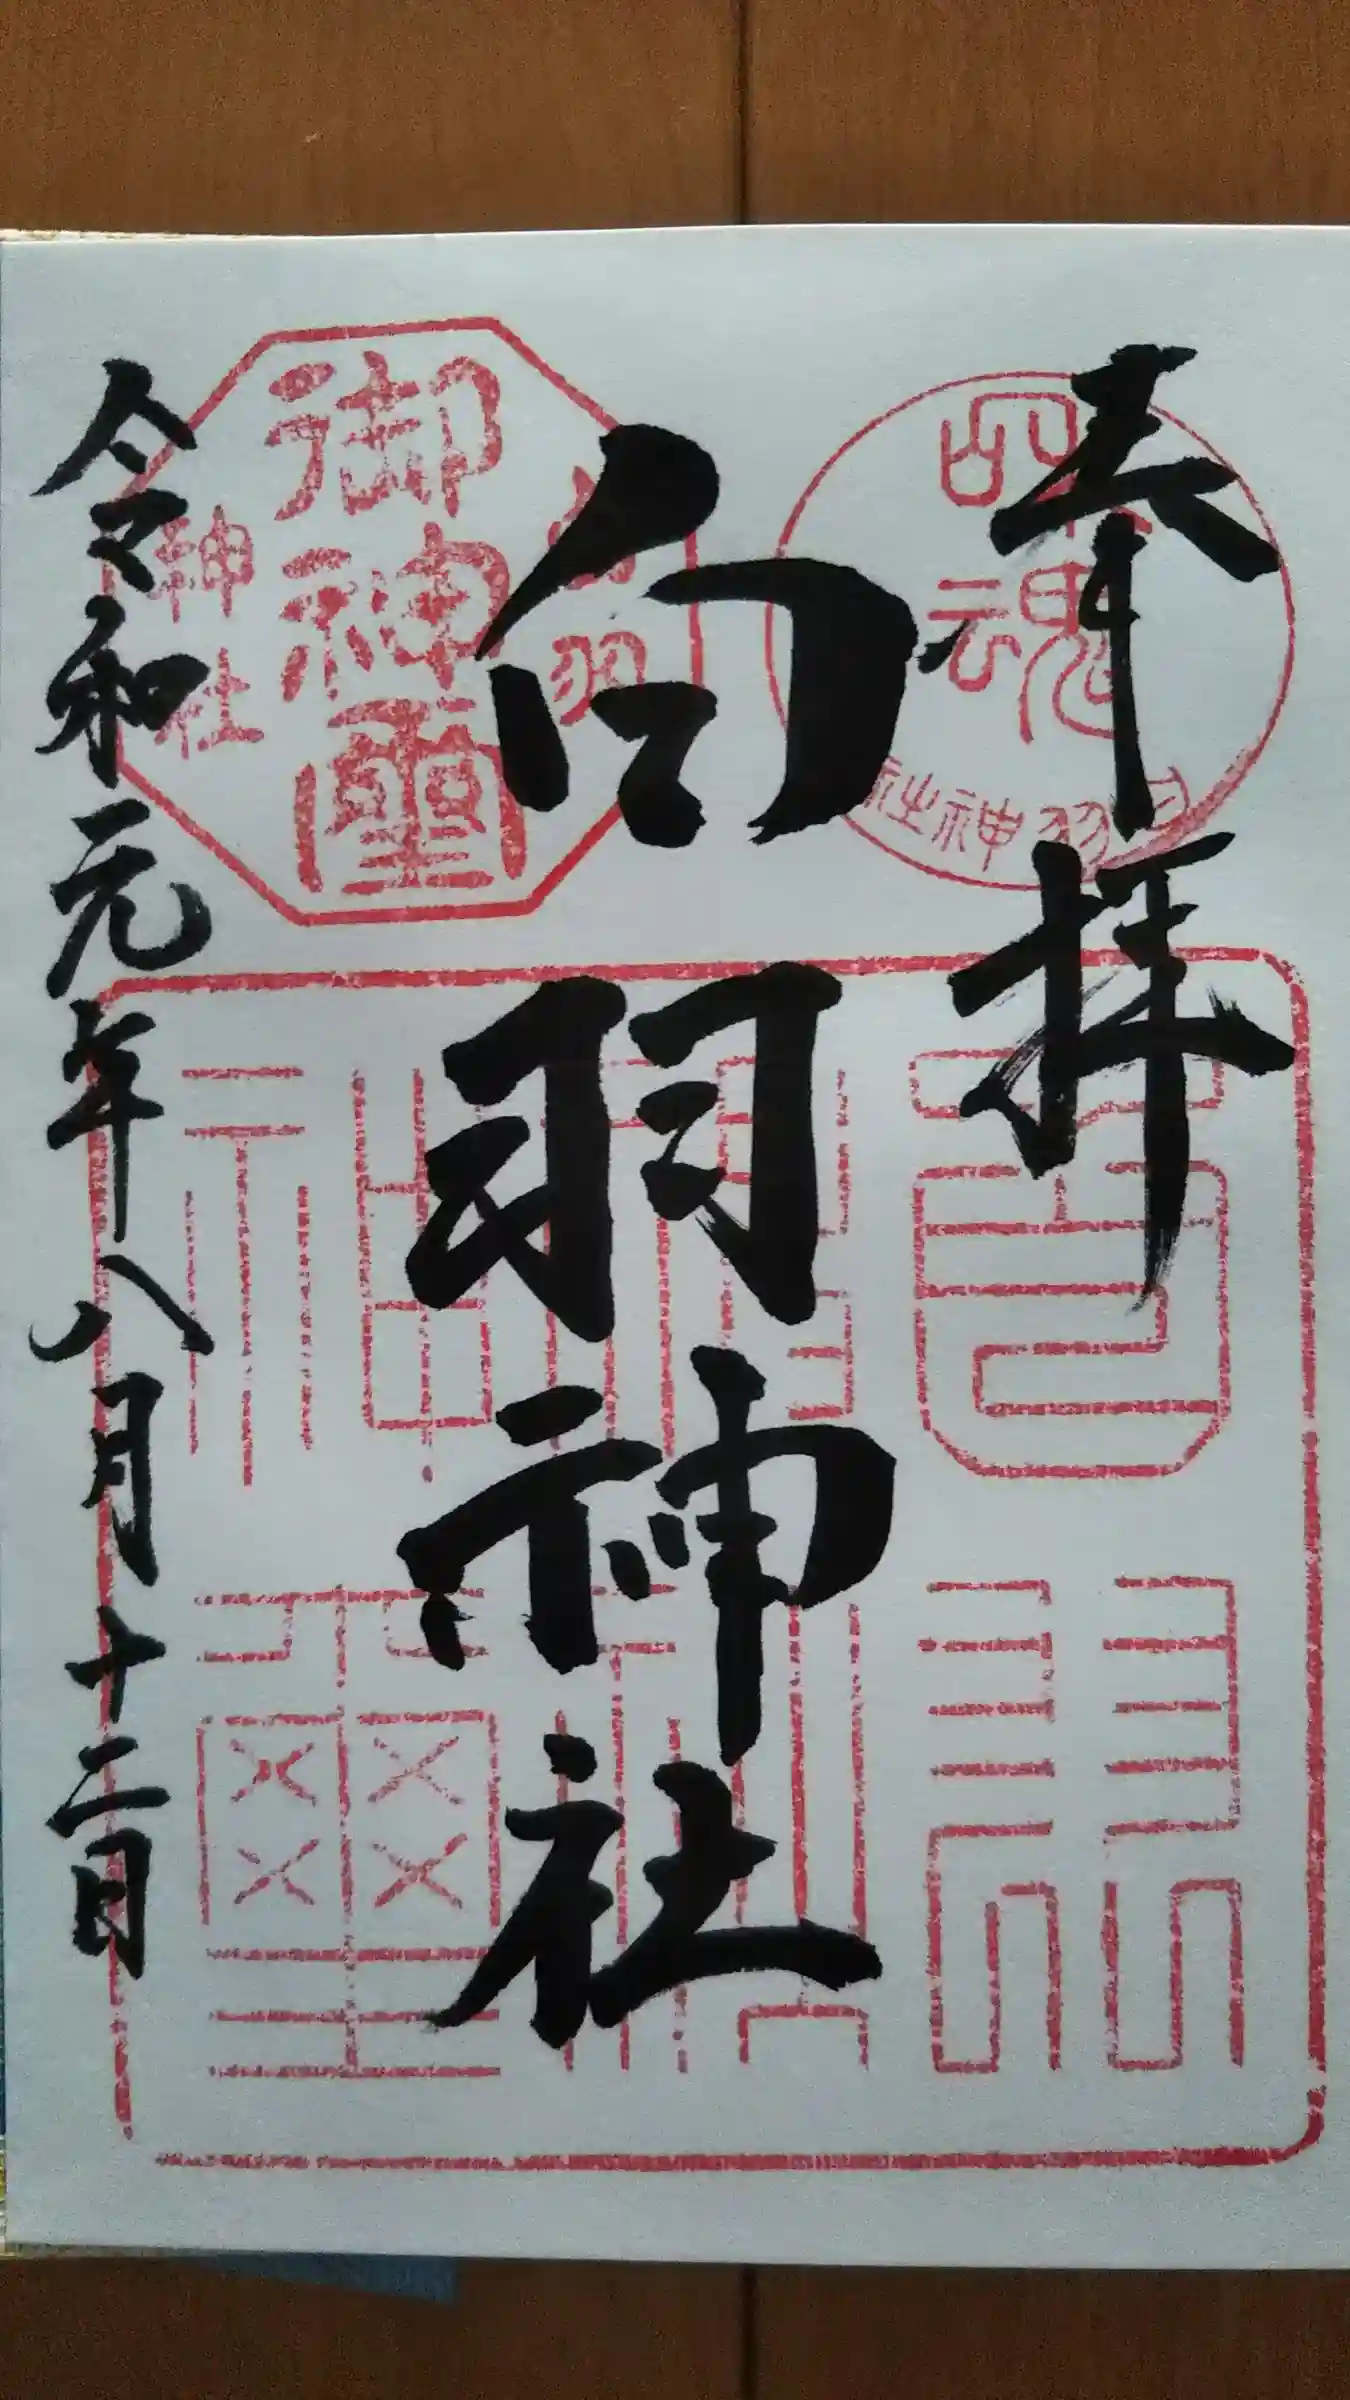 奉拝
白羽神社
令和元年八月十二日
神社
御神霊
白羽
四魂
白羽神社